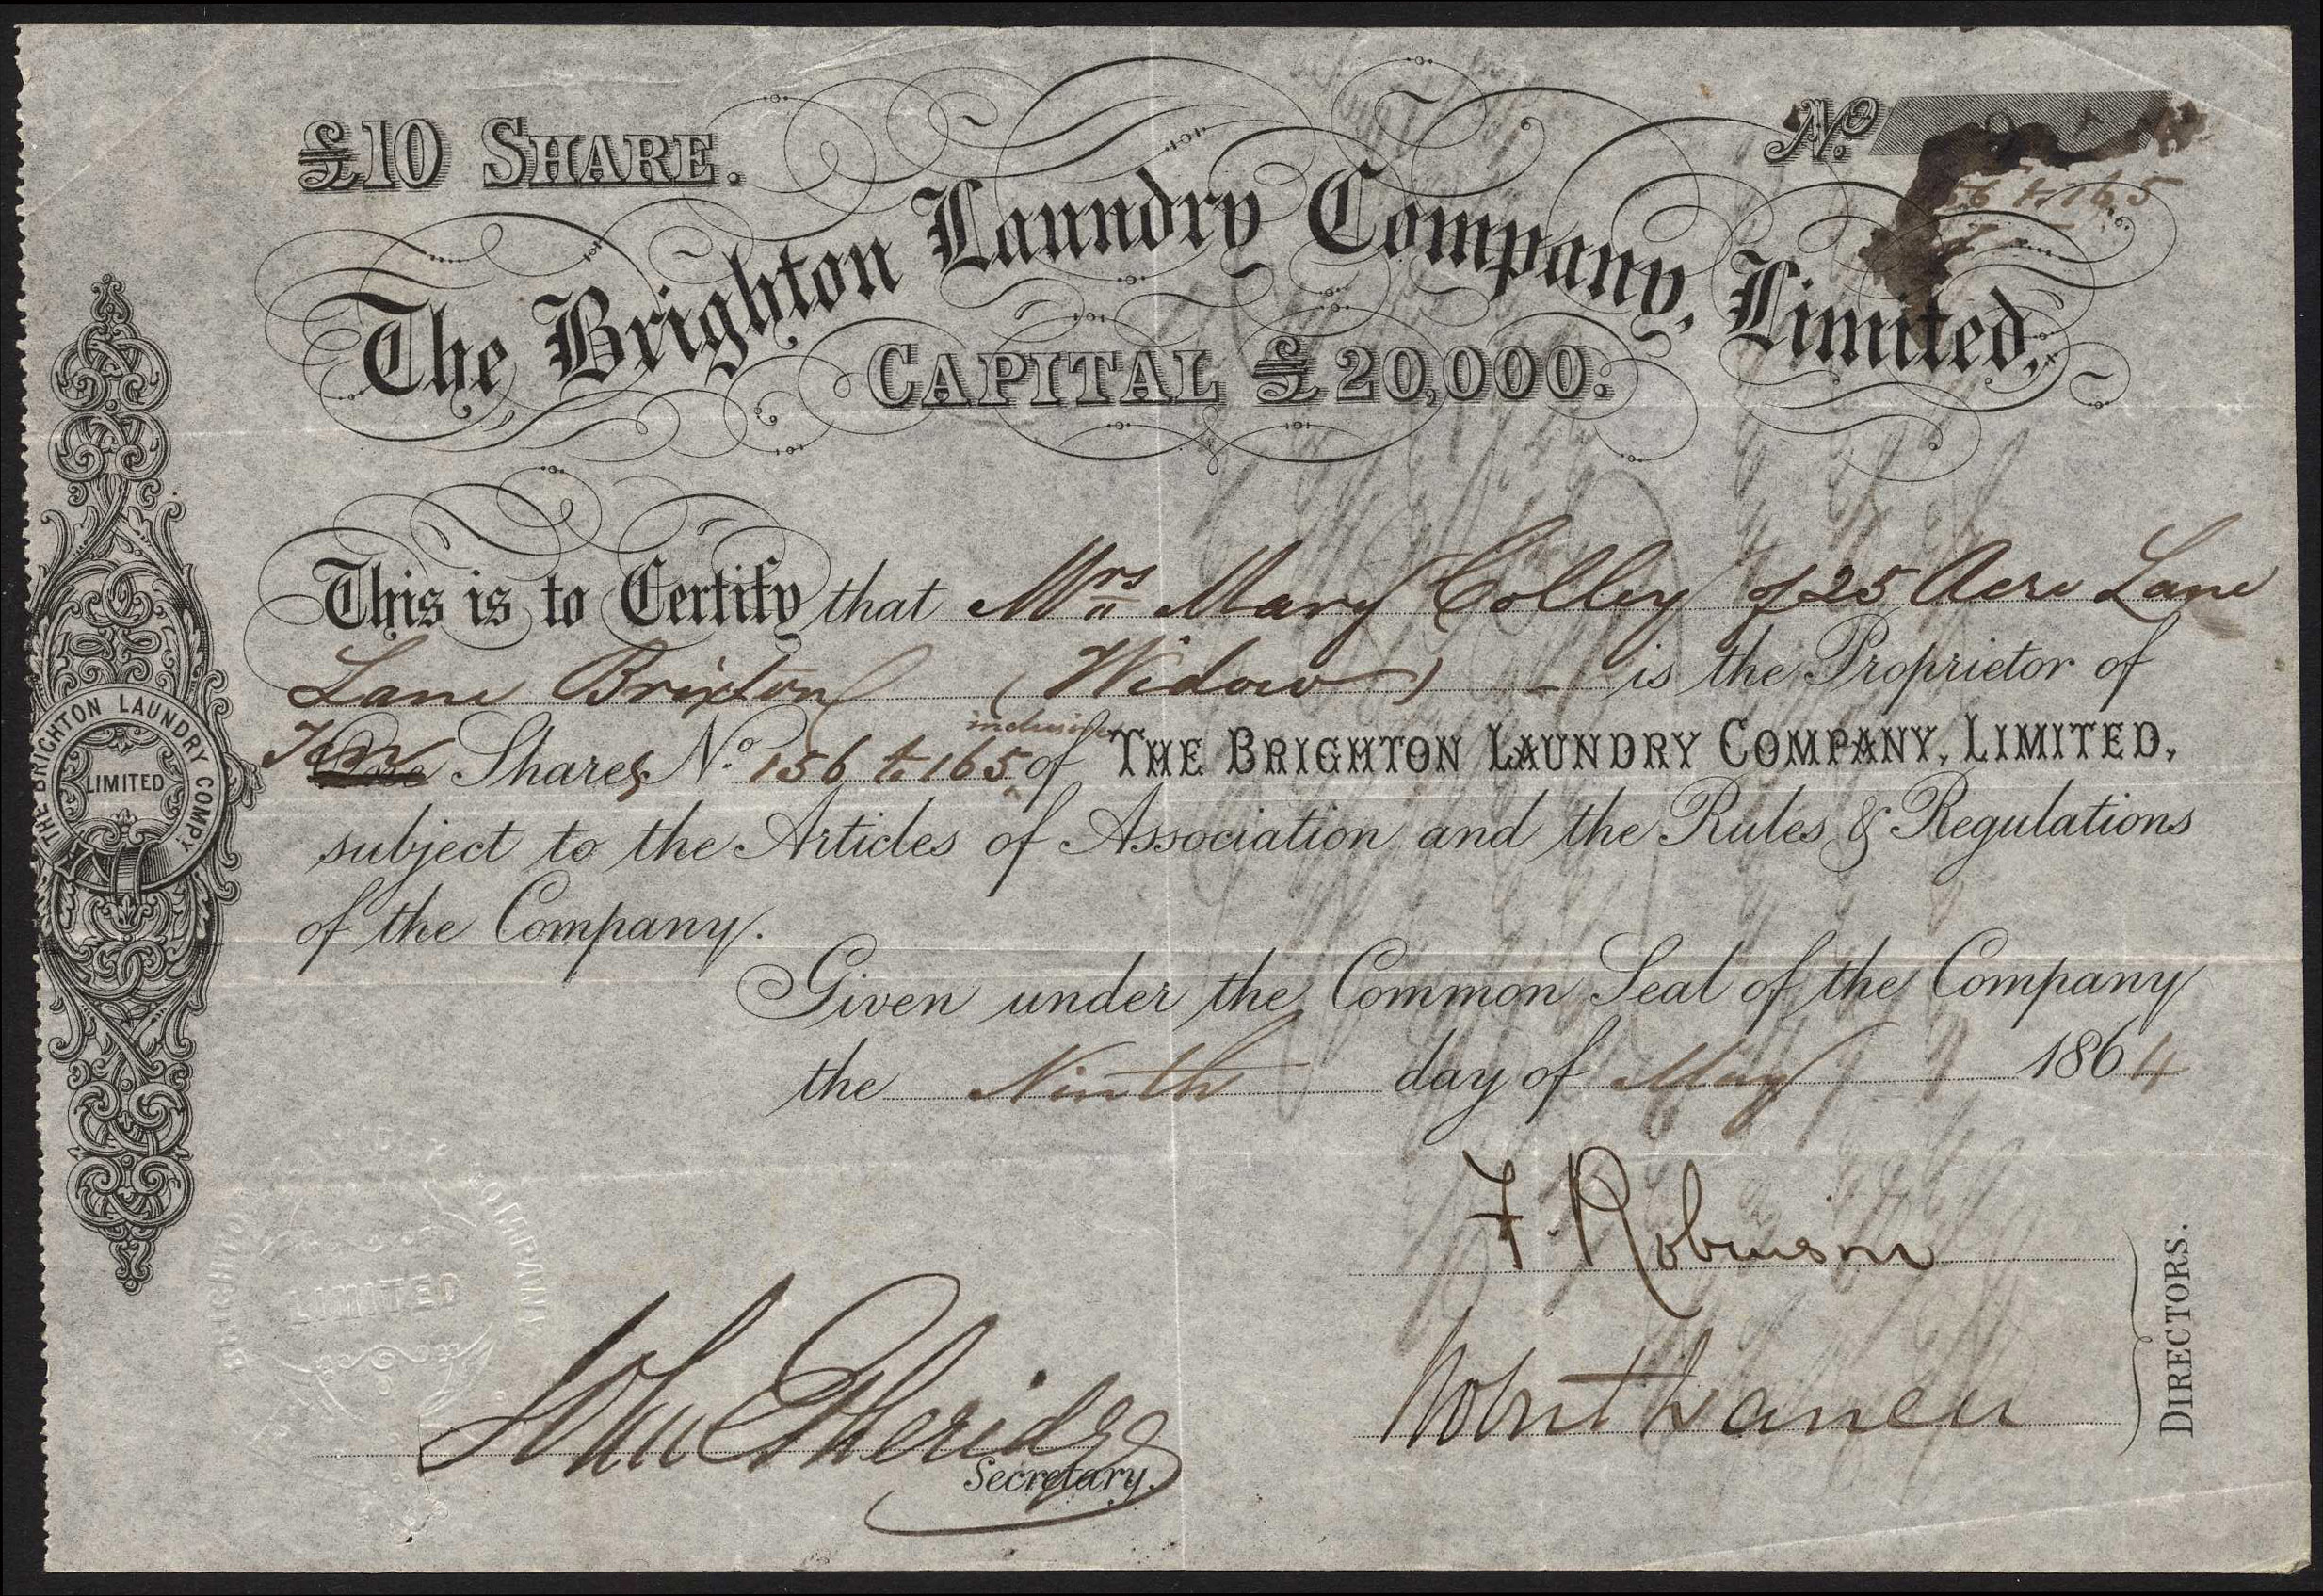 £10 SHARE.
No.
56 to 165
The Brighton Laundry Company, Limited,
CAPITAL £20,000.
This is to Certify that Mrs Mary Colley of 25 Acre Lane
Lane Brixton (Widow) - is the Proprietor of
Ten One Shares No. 156 to 165 inclusive of THE BRIGHTON LAUNDRY COMPANY, LIMITED,
subject to the Articles of Association and the Rules & Regulations
of the Company.
Given under the Common Seal of the Company
the Ninth day of May 1864
F Robinson
Wm Etheridge
Secretary.
DIRECTORS.
THE BRIGHTON LAUNDRY COMPY.
LIMITED
BRIGHTON LAUNDRY COMPANY
LIMITED